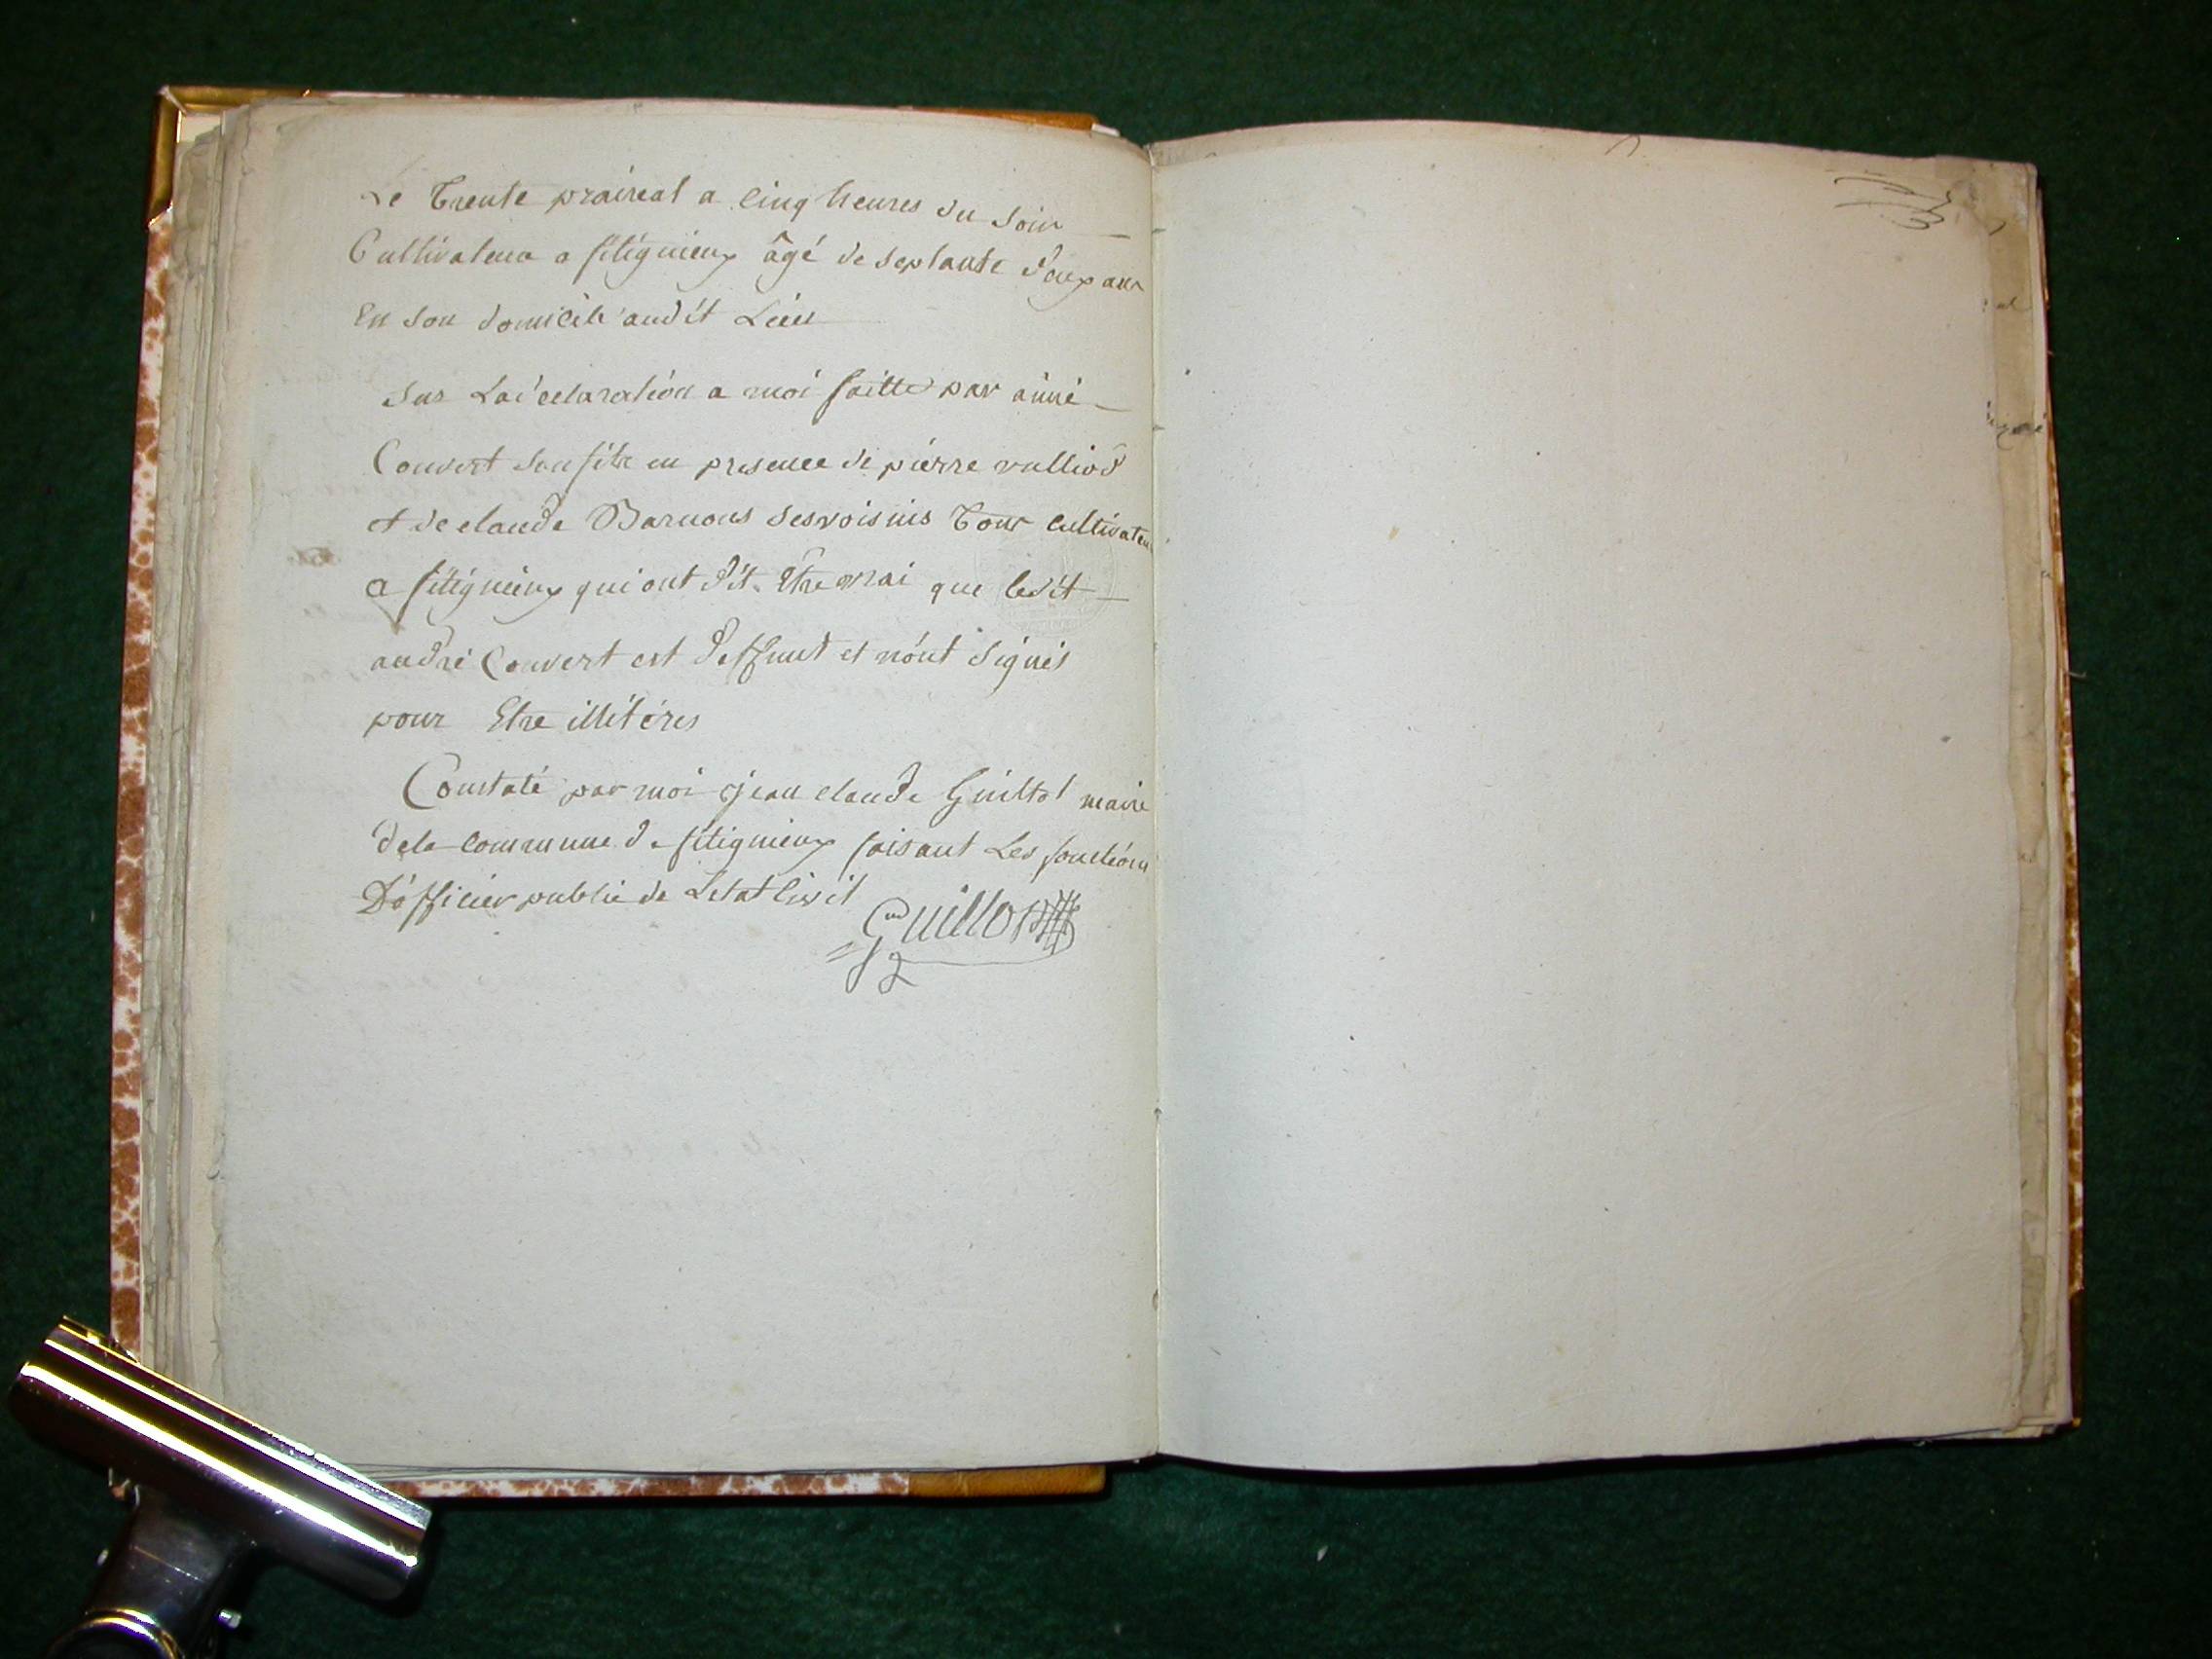 Le Trente praireal a cinq heures du soir
Cultivateur a fitignieux âgé de septante deux ans
En son domicile audit Lieu
Sur La declaration a moi faitte par aimé
Convert son fils en presence de pierre vulliod
et de claude Barnous ses voisins Tous cultivateu
a fitignieux qui ont dit Etre vrai que ledit
andré Convert est deffunt et n'ont signés
pour Etre illitéres
Constaté par moi jean claude Guillot maire
de la commune de fitignieux faisant Les fonctions
D'officier public de Letat Civil
Guillot